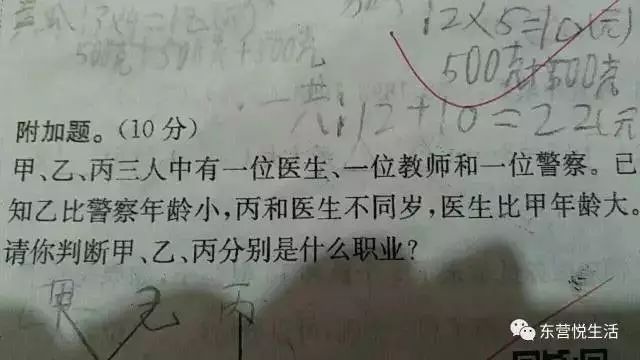 12×5=10(元)
500克+500克
一共:12+10=22(元
附加题。(10分)
甲、乙、丙三人中有一位医生、一位教师和一位警察。已
知乙比警察年龄小,丙和医生不同岁,医生比甲年龄大。
请你判断甲、乙、丙分别是什么职业?
甲 乙 丙
东营悦生活